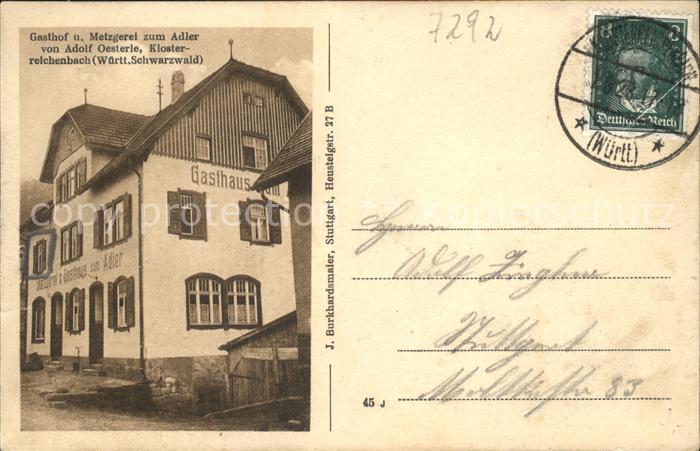 Gasthof u. Metzgerei zum Adler
von Adolf Oesterle, Kloster-
reichenbach (Württ. Schwarzwald)
Gasthaus zum
Metzgerei & Gasthaus zum Adler
J. Burkhardsmaier, Stuttgart, Heusteigstr. 27 B
7292
8
Deutsches Reich
(Württ)
Herrn
Adolf
Stuttgart
Moltkestr 83
45 J
© Ansichtskarten-Kopierschutz